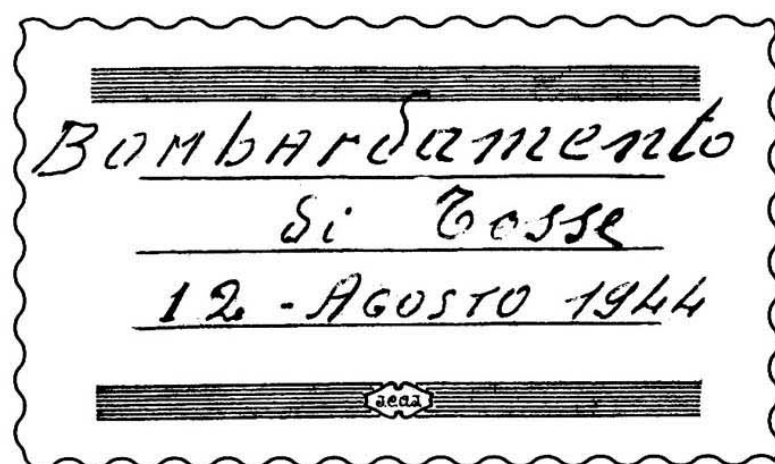 Bombardamento
di Tosse
12 - AGOSTO 1944